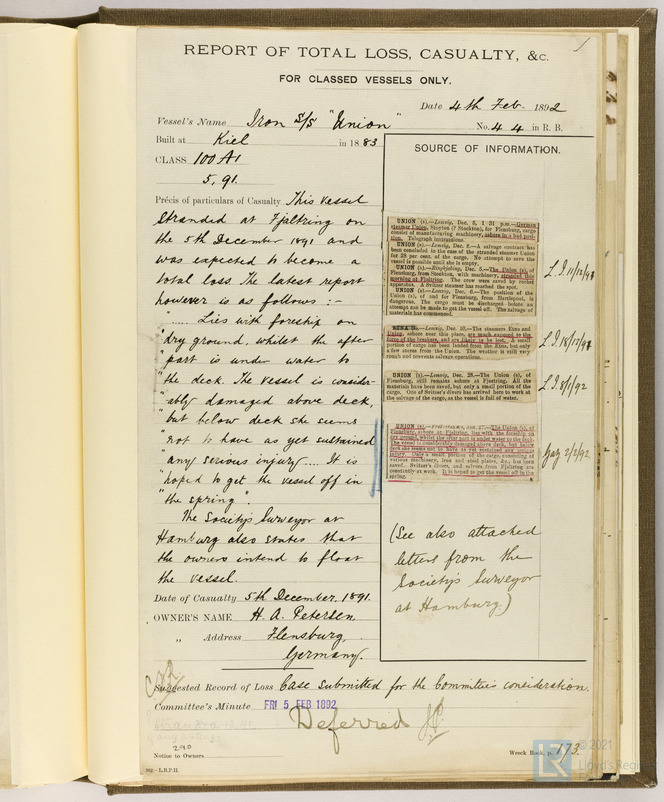 REPORT OF TOTAL LOSS, CASUALTY, &c.
FOR CLASSED VESSELS ONLY.
Date 4th Feb. 1892
Vessel's Name Iron S/S "Union"
No. 44 in R. B.
Built at Kiel in 1883
CLASS 100A1
5,91.
SOURCE OF INFORMATION.
Précis of particulars of Casualty This vessel
stranded at Fjaltring on
the 5th December 1891 and
was expected to become a
total loss. The latest report
however is as follows :-
"..... Lies with foreship on
"dry ground, whilst the after
"part is under water to
"the deck. The vessel is consider-
"ably damaged above deck,
"but below deck she seems
"not to have as yet sustained
"any serious injury .... It is
"hoped to get the vessel off in
"the spring".
The Society's Surveyor at
Hamburg also states that
the owners intend to float
the vessel.
Date of Casualty 5th December, 1891.
OWNER'S NAME H. A. Petersen,
„ Address Flensburg,
Germany.
UNION (s).—Lemvig, Dec. 5, 1 31 p.m.—German
steamer Union, Stayton (? Stockton), for Flensburg, cargo
consist of manufacturing machinery, ashore in a bad posi-
tion. Telegraph instructions.
UNION (s).—Lemvig, Dec. 8.—A salvage contract has
been concluded in the case of the stranded steamer Union
for 28 per cent. of the cargo. No attempt to save the
vessel is possible until she is empty.
UNION (s).—Ringkjobing, Dec. 5.—The Union (s), of
Flensburg, from Stockton, with machinery, stranded this
morning at Fjaltring. The crew were saved by rocket
apparatus. A Svitzer steamer has reached the spot.
UNION (s).—Lemvig, Dec. 6.—The position of the
Union (s), of and for Flensburg, from Hartlepool, is
dangerous. The cargo must be discharged before an
attempt can be made to get the vessel off. The salvage of
materials has commenced.
L.I. 11/12/91
Lemvig, Dec. 10.—The steamers Etna and
Union, ashore near this place, are much exposed to the
force of the breakers, and are likely to be lost. A small
portion of cargo has been landed from the Etna, but only
a few stores from the Union. The weather is still very
rough and prevents salvage operations.
UNION (s).—Lemvig, Dec. 28.—The Union (s), of
Flensburg, still remains ashore at Fjestring. All the
materials have been saved, but only a small portion of the
cargo. One of Svitzer's divers has arrived here to work
at the salvage of the cargo, as the vessel is full of water.
L.I. 8/1/92
UNION (s).—The Union (s), of
Flensburg, ashore at Fjaltring, lies with the foreship on
dry ground, whilst the after part is under water to the deck.
The vessel is considerably damaged above deck, but below
deck she seems not to have as yet sustained any serious
injury. Only a small portion of the cargo, consisting of
various machinery, iron and steel plates, &c., has been
saved. Svitzer's divers, and salvors from Fjaltring are
constantly at work. It is hoped to get the vessel off in the
spring.
2/2/92
(See also attached
letters from the
Society's Surveyor
at Hamburg)
Suggested Record of Loss Case submitted for the Committee's consideration.
Committee's Minute FRI 5 FEB 1892
Deferred
290
Notice to Owners
Wreck Book, p. 173.
LR © 2021
Lloyd's Register